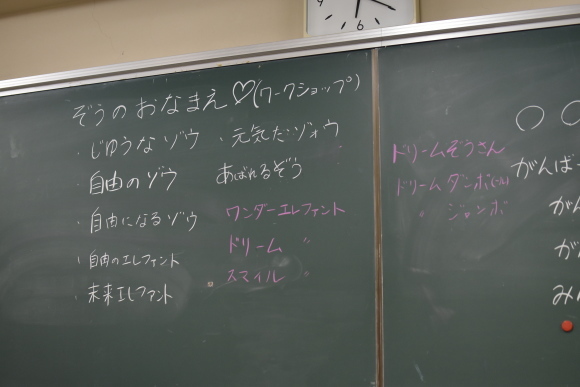 6
ぞうのおなまえ♡(ワークショップ)
・じゆうなゾウ
・自由のゾウ
・自由になるゾウ
・自由のエレファント
・未来エレファント
・元気だゾォウ
あばれるぞう
ワンダーエレファント
ドリーム 〃
スマイル 〃
ドリームぞうさん
ドリームダンボ(ール)
〃 ジャンボ
○○
がんばー
がん
が
み